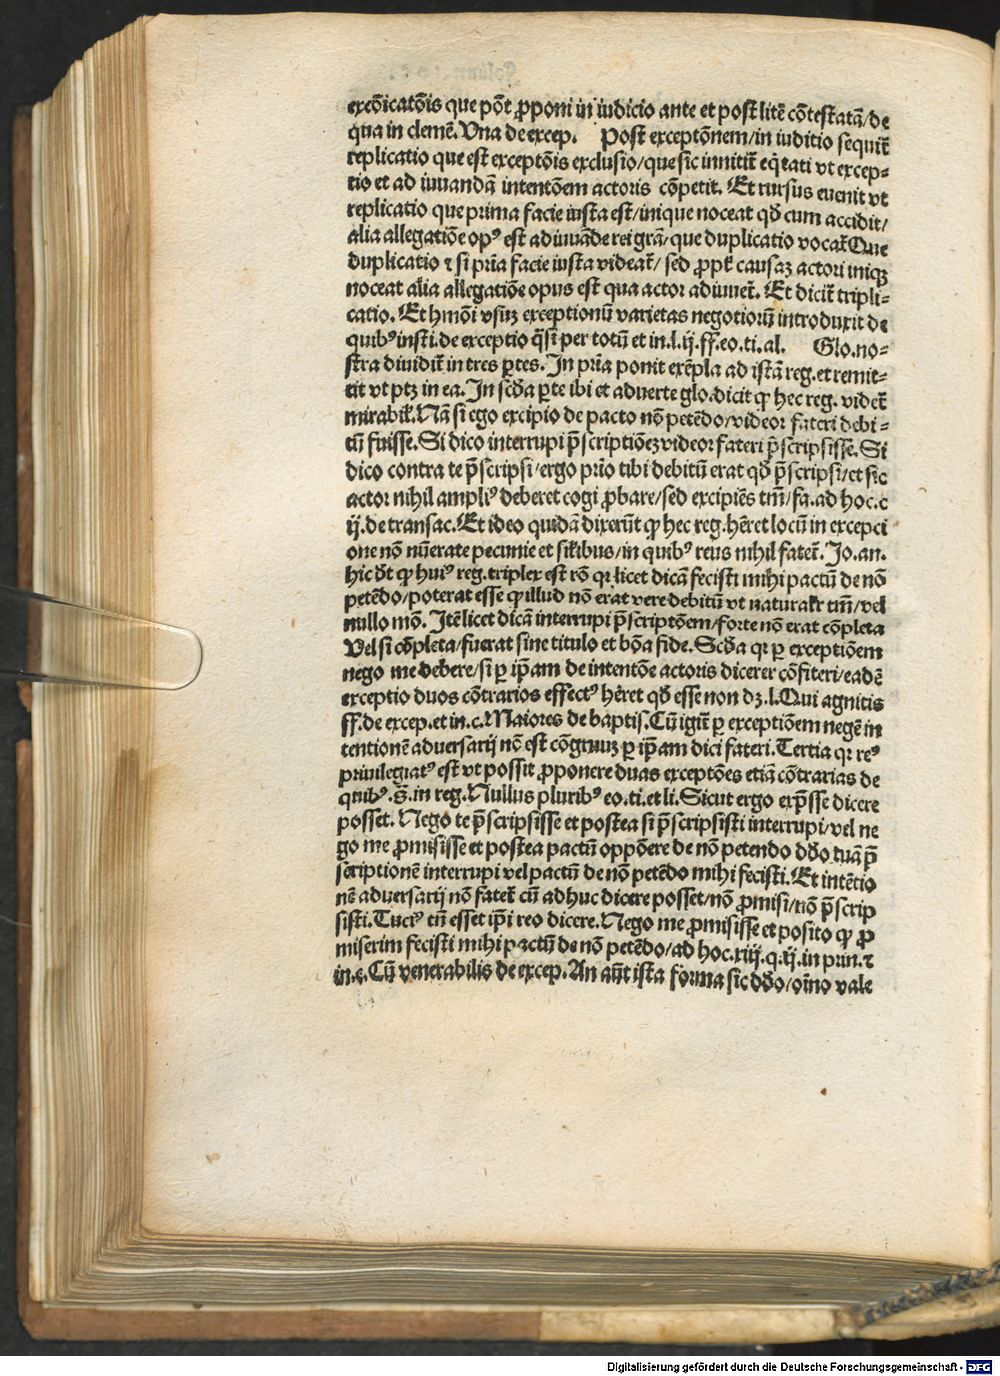 excōicatōis que pōt ꝓponi in iudicio ante et post litē cōtestatā/de
qua in clemē. Vna de excep. Post exceptōnem/in iuditio sequit̄
replicatio que est exceptōis exclusio/que sic innitit̄ eq̇tati vt excep⸗
tio et ad iuuandā intentōem actoris cōpetit. Et rursus euenit vt
replicatio que prima facie iusta est/inique noceat qd̄ cum accidit/
alia allegatiōe opꝰ est ad iuuāde rei grā/que duplicatio vocat̄ Que
duplicatio ⁊ si pria facie iusta videat̄/ sed ꝓpt̄ causaꝫ actori iniqꝫ
noceat alia allegatiōe opus est qua actor adiuuet̄. Et dicit̄ tripli⸗
catio. Et hmōi vsuꝫ exceptionū varietas negotiorū introduxit de
quibꝰ insti. de exceptio q̄si per totū et in.l.ij.ff.eo.ti.al. Glo.no⸗
stra diuidit̄ in tres ꝑtes. In pria ponit exēpla ad istā reg. et remit⸗
tit vt ptꝫ in ea. In scd̄a ꝑte ibi et aduerte glo. dicit ꝙ hec reg. videt̄
mirabil. Nā si ego excipio de pacto nō petēdo/videor fateri debi⸗
tū fuisse. Si dico interrupi p̄scriptiōeꝫ videor fateri p̄scripsisse. Si
dico contra te p̄scripsi/ergo prio tibi debitū erat qd̄ p̄scripsi/et sic
actor nihil ampliꝰ deberet cogi ꝓbare/sed excipiēs tm̄/fa. ad hoc.c
ij. de transac. Et ideo quidā dixerūt ꝙ hec reg. hēret locū in excepci
one nō nūerate pecunie et silibus/in quibꝰ reus nihil fatet̄. Jo.an.
hic dt̄ ꝙ huiꝰ reg. triplex est rō qꝛ licet dicā fecisti mihi pactū de nō
petēdo/poterat esse ꝙ illud nō erat vere debitū vt naturalr̄ tm̄/vel
nullo mō. Itē licet dicā interrupi p̄scriptōem/forte nō erat cōpleta
Vel si cōpleta/fuerat sine titulo et bōa fide. Scd̄a qꝛ ꝑ exceptiōem
nego me debere/si ꝑ ip̄am de intentōe actoris dicerer cōfiteri/eadē
exceptio duos cōtrarios effectꝰ hēret qd̄ esse non dꝫ.l. Qui agnitis
ff. de excep. et in.c. Maiores de baptis. Cū igit̄ ꝑ exceptiōem negē in
tentionē aduersarij nō est cōgruuꝫ ꝑ ip̄am dici fateri. Tertia qꝛ reꝰ
priuilegiatꝰ est vt possit ꝓponere duas exceptōes etiā cōtrarias de
quibꝰ.s̄. in reg. Nullus pluribꝰ eo.ti. et li. Sicut ergo exp̄sse dicere
posset. Nego te p̄scripsisse et postea si p̄scripsisti interrupi/vel ne
go me ꝓmisisse et postea pactū oppōere de nō petendo dd̄o tuā p̄
scriptionē interrupi vel pactū de nō petēdo mihi fecisti. Et intētio
nē aduersarij nō fatet̄ cū adhuc dicere posset/nō ꝓmisi/nō p̄scrip
sisti. Tuciꝰ tn̄ esset ip̄i reo dicere. Nego me ꝓmisisse et posito ꝙ ꝓ
miserim fecisti mihi pactū de nō petēdo/ad hoc.xiij.q.ij. in prin. ⁊
in.c. Cū venerabilis de excep. An aūt ista forma sic dd̄o/oīno vale
Digitalisierung gefördert durch die Deutsche Forschungsgemeinschaft - DFG